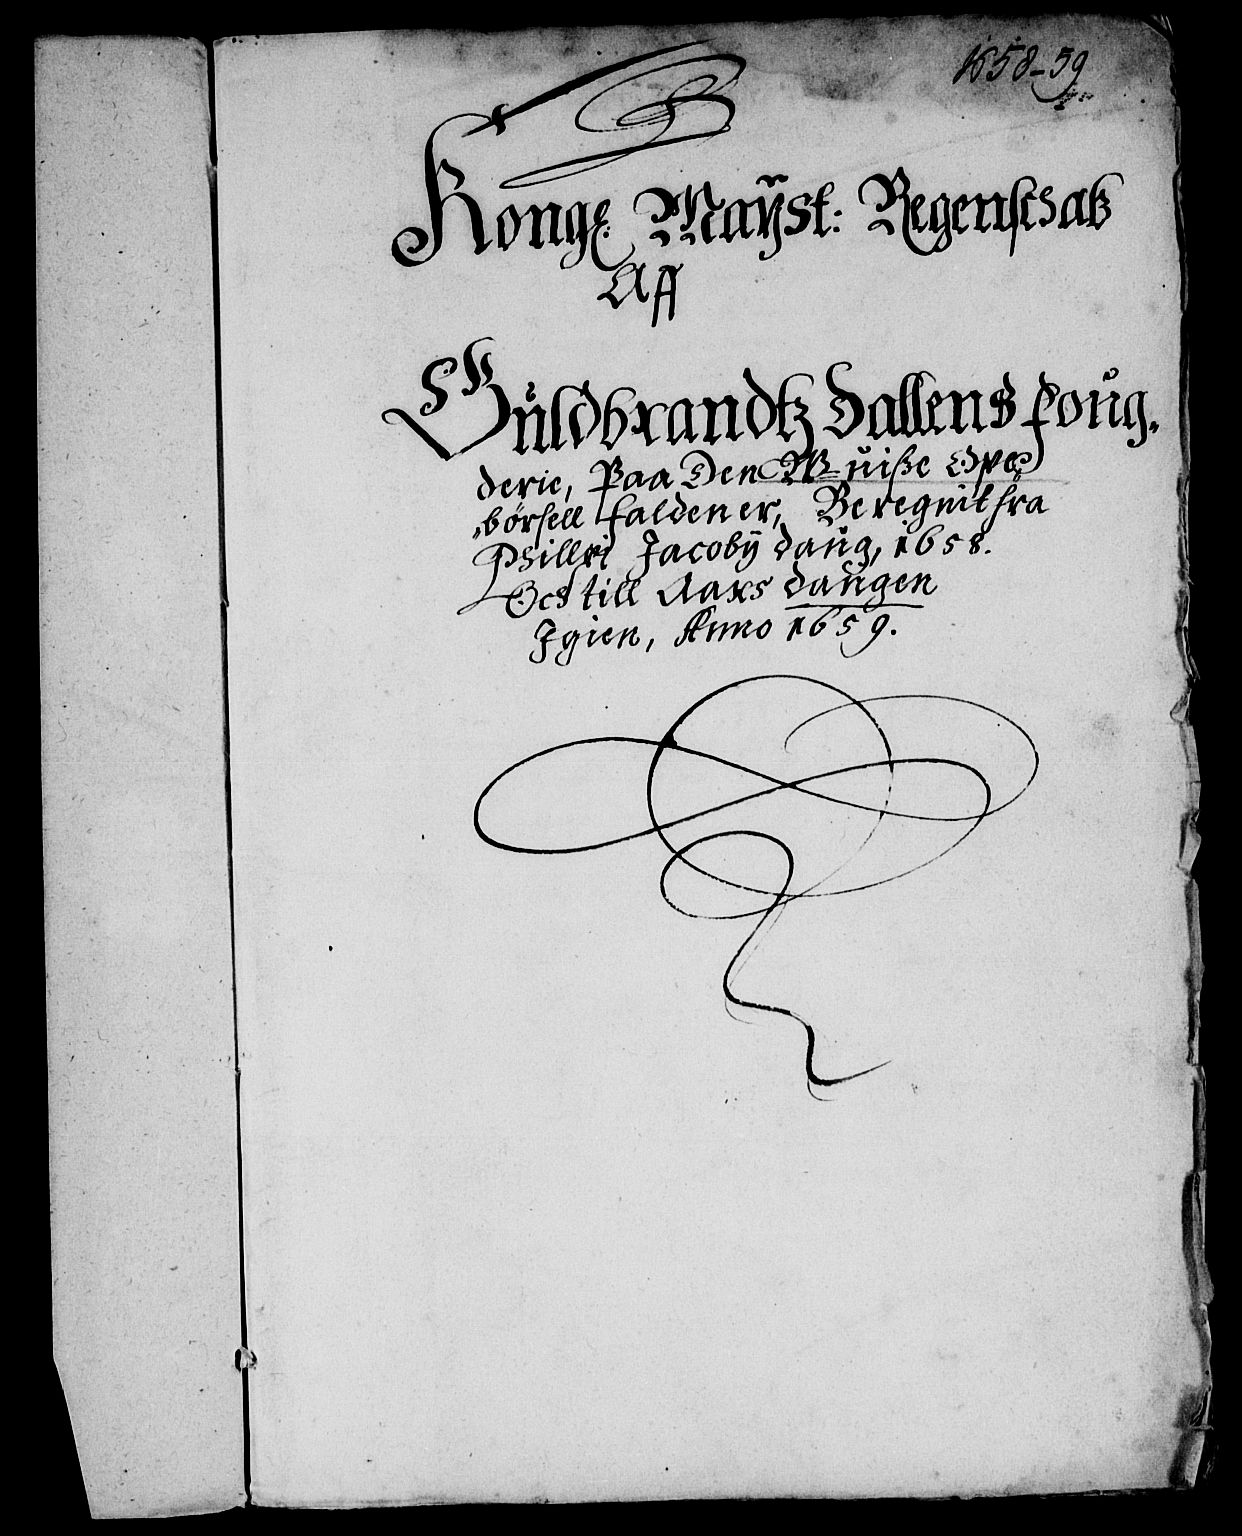 1658-59
Kongl. Mayst: Regenschab
Aff
Guldbrandtz Dallens foug,
derie, Paa Den Uuiße Ope
börsell falden er, Beregnit fra
Philli Jacobÿ daug, 1658.
Och till Aars daugen
Igien, Anno 1659.